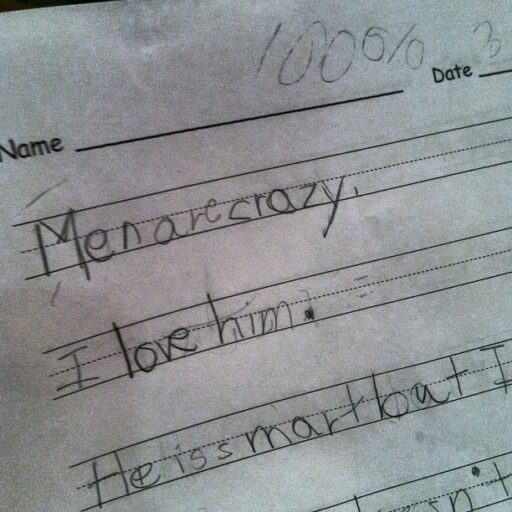 100%
Date 3
Name
Men are crazy.
I love him.
He is smart but I
sn't